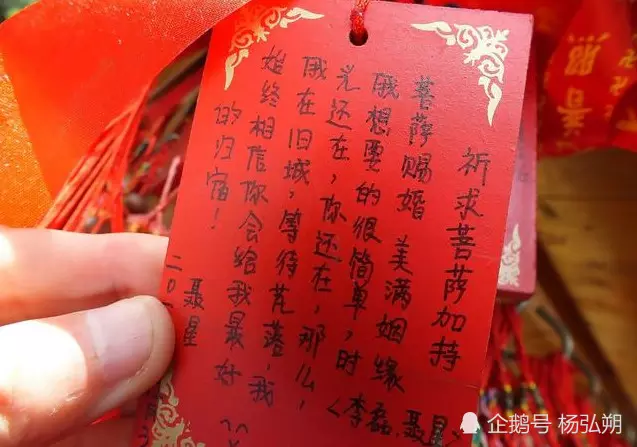 祈求菩萨加持
菩萨赐婚 美满姻缘
〈李磊.聂星
俄想要的很简单，时
光还在，你还在，那么，
俄在旧城，等待花落，我
始终相信你会给我最好
的归宿！
聂星
二0
普照
企鹅号 杨弘朔